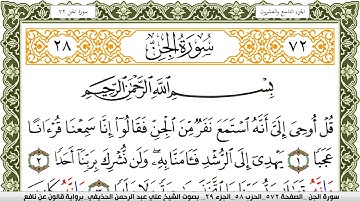 الجزء التاسع والعشرون
سورة الجن ٧٢
٢٨ سُورَةُ الجِنِّ ٧٢
بِسْمِ اللَّهِ الرَّحْمَٰنِ الرَّحِيمِ
قُلْ أُوحِيَ إِلَيَّ أَنَّهُ اسْتَمَعَ نَفَرٌ مِّنَ الْجِنِّ فَقَالُوا إِنَّا سَمِعْنَا قُرْءَانًا
عَجَبًا ١ يَهْدِي إِلَى الرُّشْدِ فَـَٔامَنَّا بِهِ وَلَن نُّشْرِكَ بِرَبِّنَا أَحَدًا ٢
سورة الجن . الصفحة ٥٧٢ . الحزب ٥٨ . الجزء ٢٩ . بصوت الشيخ علي عبد الرحمن الحذيفي . برواية قالون عن نافع